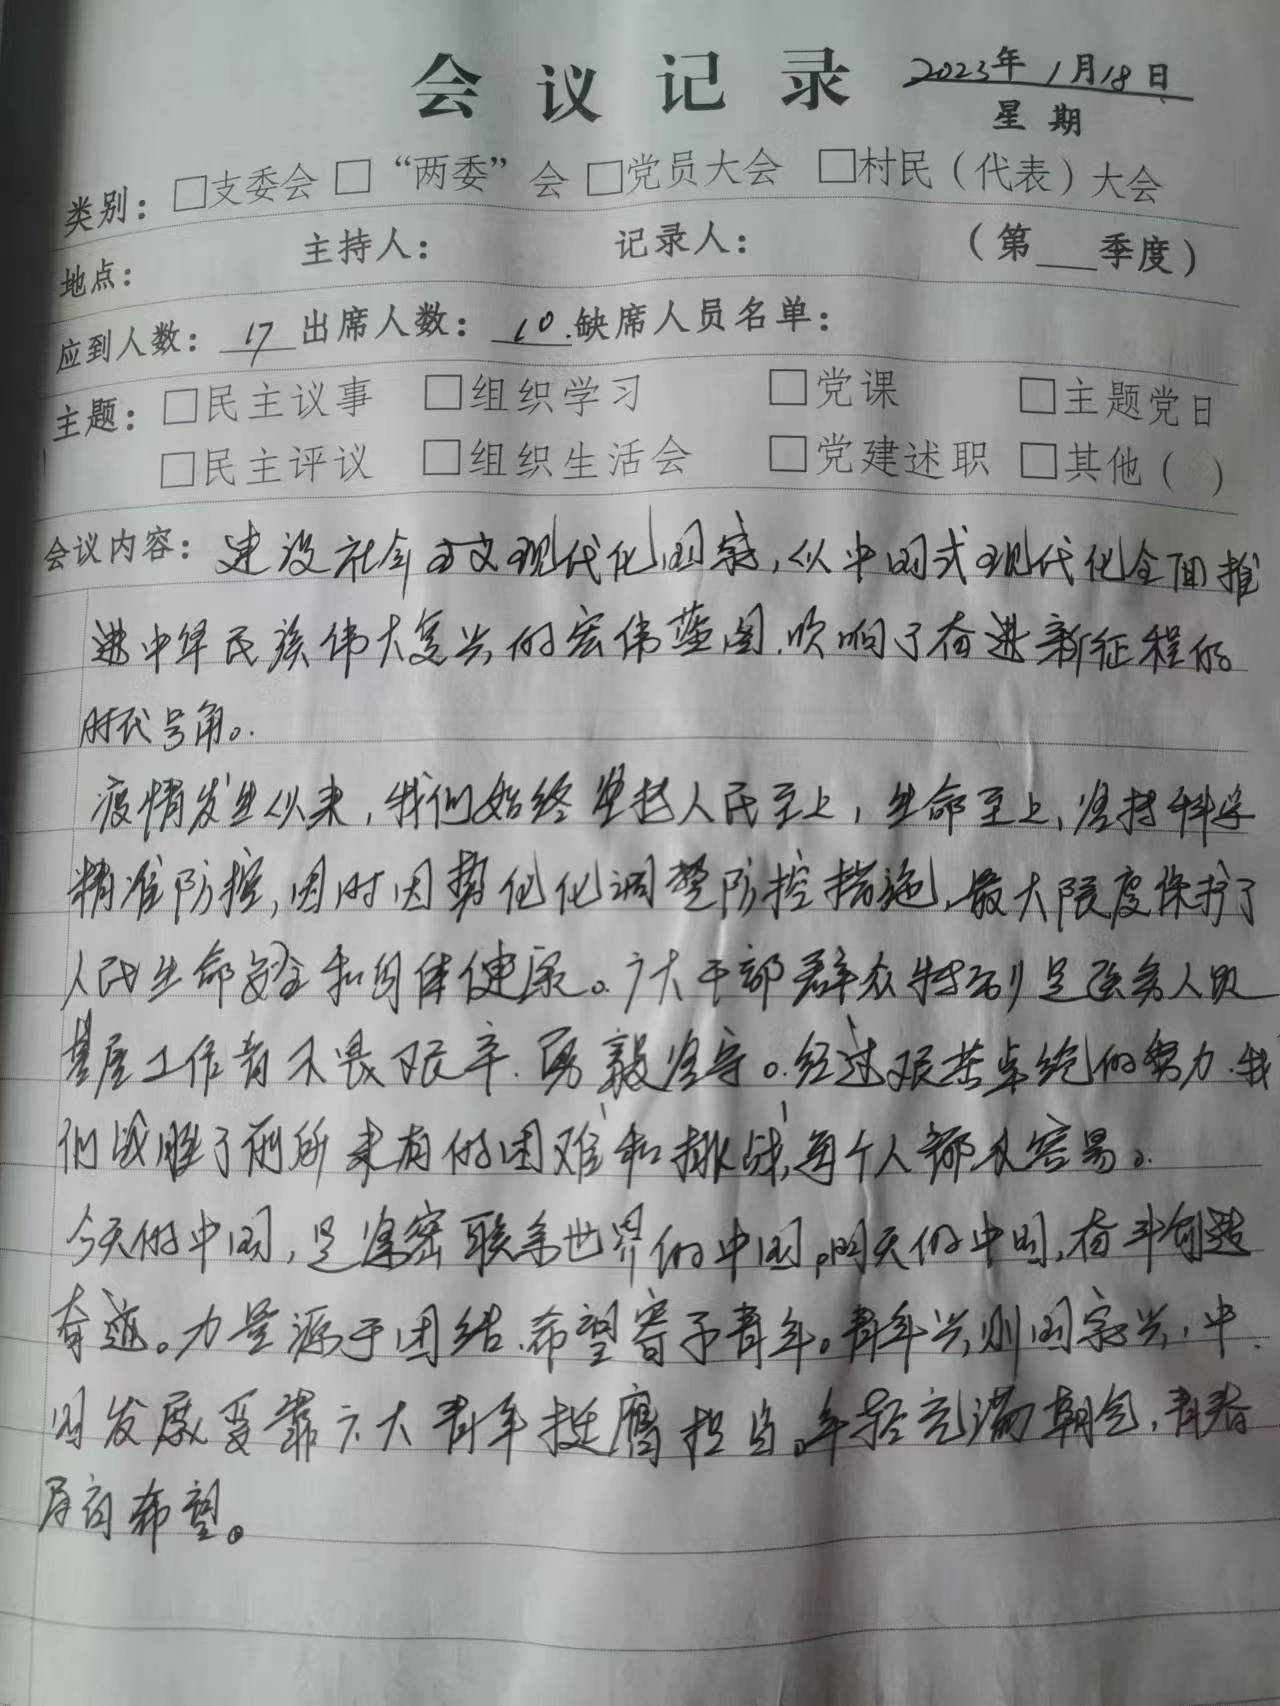 会议记录 2023年1月18日
星期
类别：□支委会 □“两委”会 □党员大会 □村民（代表）大会
地点： 主持人： 记录人： （第___季度）
应到人数：17 出席人数：10.缺席人员名单：
主题：□民主议事 □组织学习 □党课 □主题党日
□民主评议 □组织生活会 □党建述职 □其他（ ）
会议内容：建设社会主义现代化国家，以中国式现代化全面推
进中华民族伟大复兴的宏伟蓝图，吹响了奋进新征程的
时代号角。
疫情发生以来，我们始终坚持人民至上，生命至上，坚持科学
精准防控，因时因势优化调整防控措施，最大限度保护了
人民生命安全和身体健康。广大干部群众特别是医务人员
基层工作者不畏艰辛，勇毅坚守。经过艰苦卓绝的努力，我
们战胜了前所未有的困难和挑战，每个人都不容易。
今天的中国，是紧密联系世界的中国。明天的中国，奋斗创造
奇迹。力量源于团结，希望寄予青年。青年兴则国家兴，中
国发展要靠广大青年挺膺担当。年轻充满朝气，青春
孕育希望。